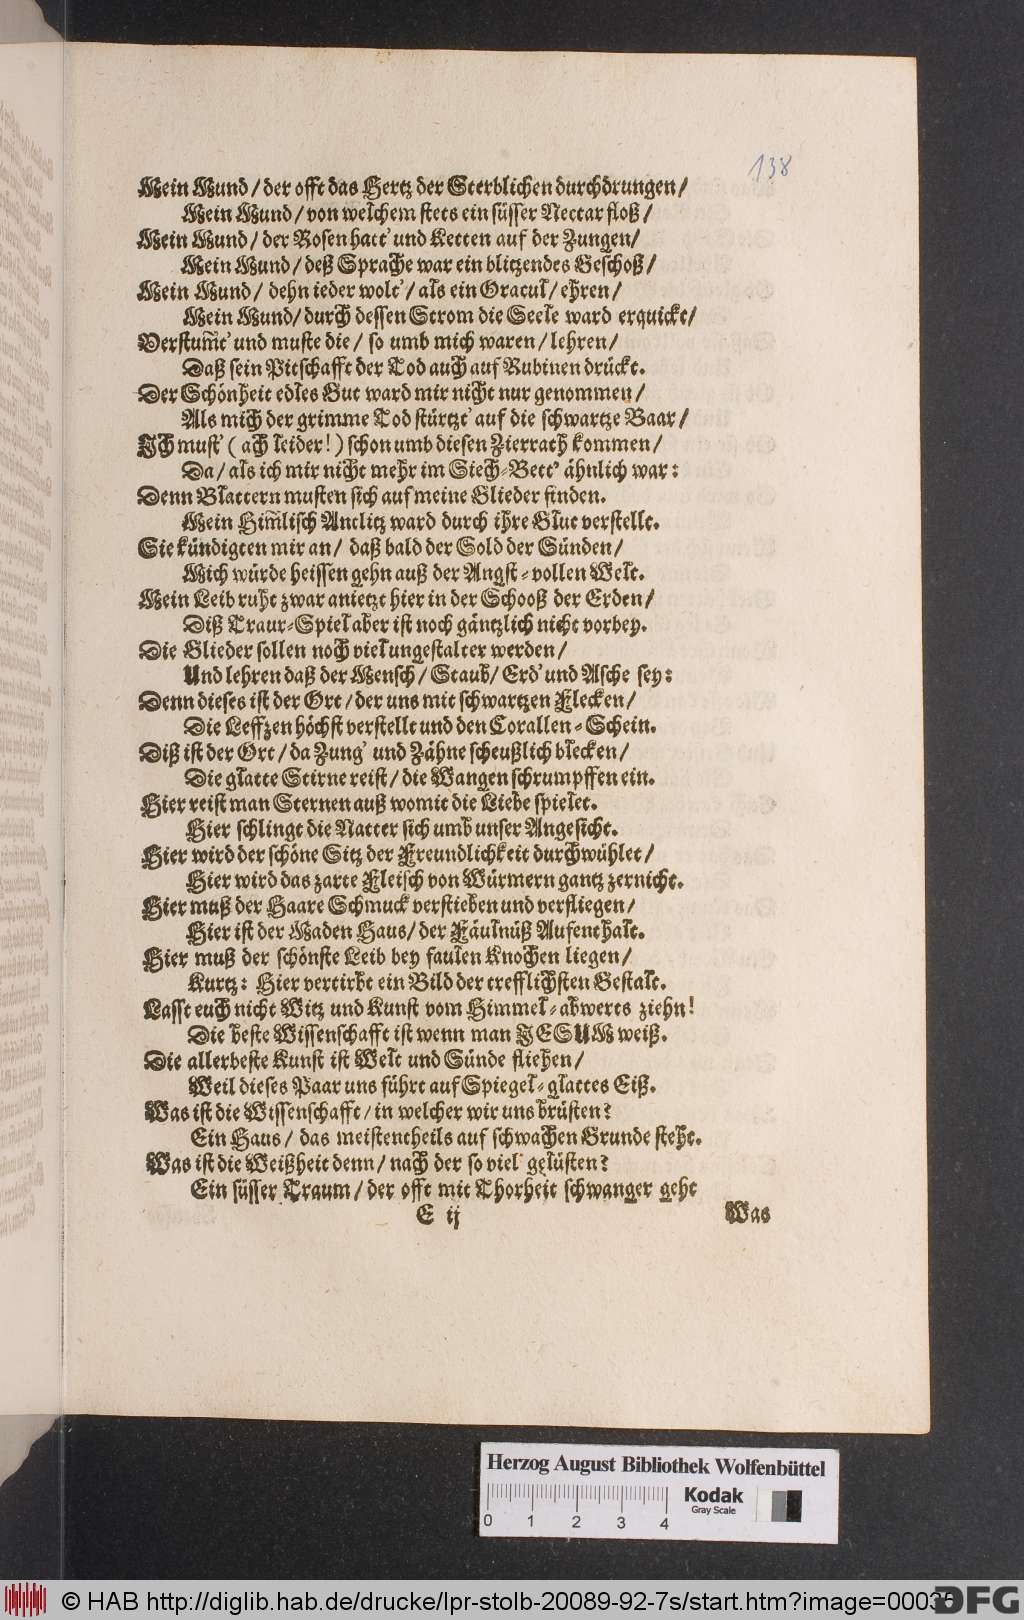 138
Mein Mund / der offt das Hertz der Sterblichen durchdrungen /
Mein Mund / von welchem stets ein süsser Nectar floß /
Mein Mund / der Rosen hatt' und Ketten auf der Zungen /
Mein Mund / deß Sprache war ein blitzendes Geschoß /
Mein Mund / dehn ieder wolt' / als ein Oracul / ehren /
Mein Mund / durch dessen Strom die Seele ward erquickt /
Verstum̃t' und muste die / so umb mich waren / lehren /
Daß sein Pitschafft der Tod auch auf Rubinen drückt.
Der Schönheit edles Gut ward mir nicht nur genommen /
Als mich der grimme Tod stürtzt' auf die schwartze Baar /
Ich must' ( ach leider! ) schon umb diesen Zierrath kommen /
Da / als ich mir nicht mehr im Siech-Bett' ähnlich war:
Denn Blattern musten sich auf meine Glieder finden.
Mein Him̃lisch Antlitz ward durch ihre Glut verstellt.
Sie kündigten mir an / daß bald der Sold der Sünden /
Mich würde heissen gehn auß der Angst-vollen Welt.
Mein Leib ruht zwar anietzt hier in der Schooß der Erden /
Diß Traur-Spiel aber ist noch gäntzlich nicht vorbey.
Die Glieder sollen noch viel ungestalter werden /
Und lehren daß der Mensch / Staub / Erd' und Asche sey:
Denn dieses ist der Ort / der uns mit schwartzen Flecken /
Die Leffzen höchst verstellt und den Corallen-Schein.
Diß ist der Ort / da Zung' und Zähne scheußlich blecken /
Die glatte Stirne reist / die Wangen schrumpffen ein.
Hier reist man Sternen auß womit die Liebe spielet.
Hier schlingt die Natter sich umb unser Angesicht.
Hier wird der schöne Sitz der Freundlichkeit durchwühlet /
Hier wird das zarte Fleisch von Würmern gantz zernicht.
Hier muß der Haare Schmuck verstieben und verfliegen /
Hier ist der Maden Haus / der Fäulnüß Aufenthalt.
Hier muß der schönste Leib bey faulen Knochen liegen /
Kurtz: Hier vertirbt ein Bild der trefflichsten Gestalt.
Lasst euch nicht Witz und Kunst vom Himmel-abwerts ziehn!
Die beste Wissenschafft ist wenn man JESUM weiß.
Die allerbeste Kunst ist Welt und Sünde fliehen /
Weil dieses Paar uns führt auf Spiegel-glattes Eiß.
Was ist die Wissenschafft / in welcher wir uns brüsten?
Ein Haus / das meistentheils auf schwachen Grunde steht.
Was ist die Weißheit denn / nach der so viel gelüsten?
Ein süsser Traum / der offt mit Thorheit schwanger geht
E ij Was
Herzog August Bibliothek Wolfenbüttel
Kodak
Gray Scale
0 1 2 3 4
© HAB http://diglib.hab.de/drucke/lpr-stolb-20089-92-7s/start.htm?image=00035
DFG